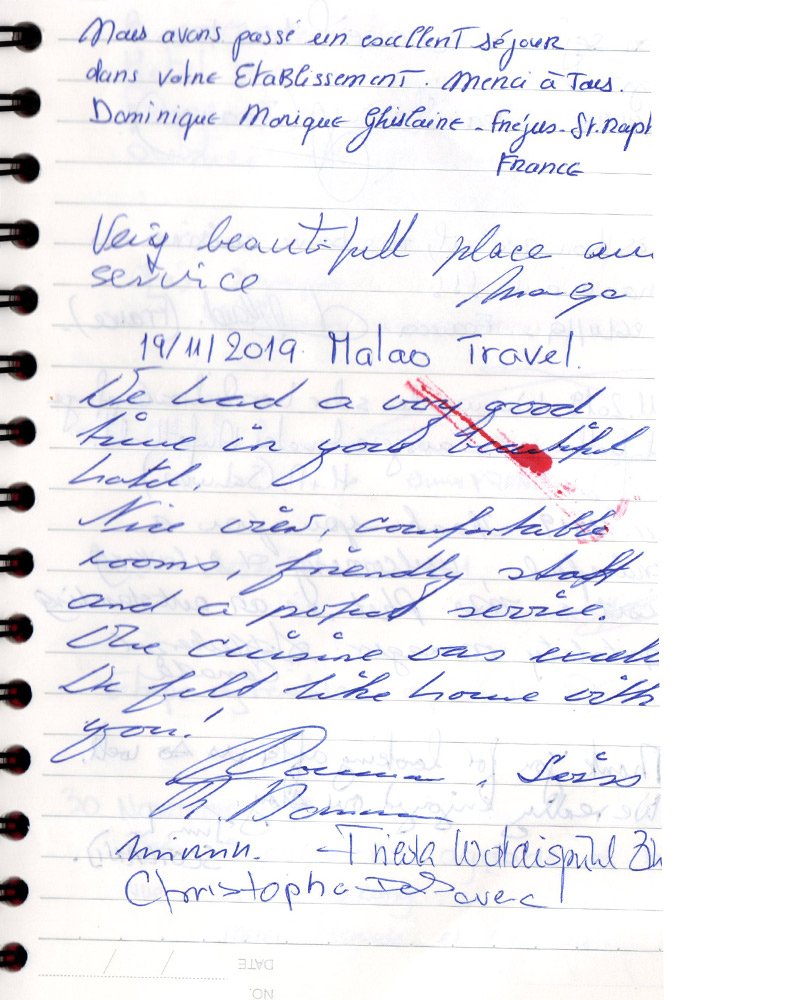 Nous avons passé un excellent séjour
dans votre Etablissement. Merci à Tous.
Dominique Monique Ghislaine - Fréjus - St. Raph
France
Very beautifull place an
service
19/11/2019. Malao Travel.
We had a very good
time in your beautiful
hotel.
Nice view, comfortable
rooms, friendly staff
and a perfect service.
The cuisine was excell
We felt like home with
you!
Christophe
DATE
NO.